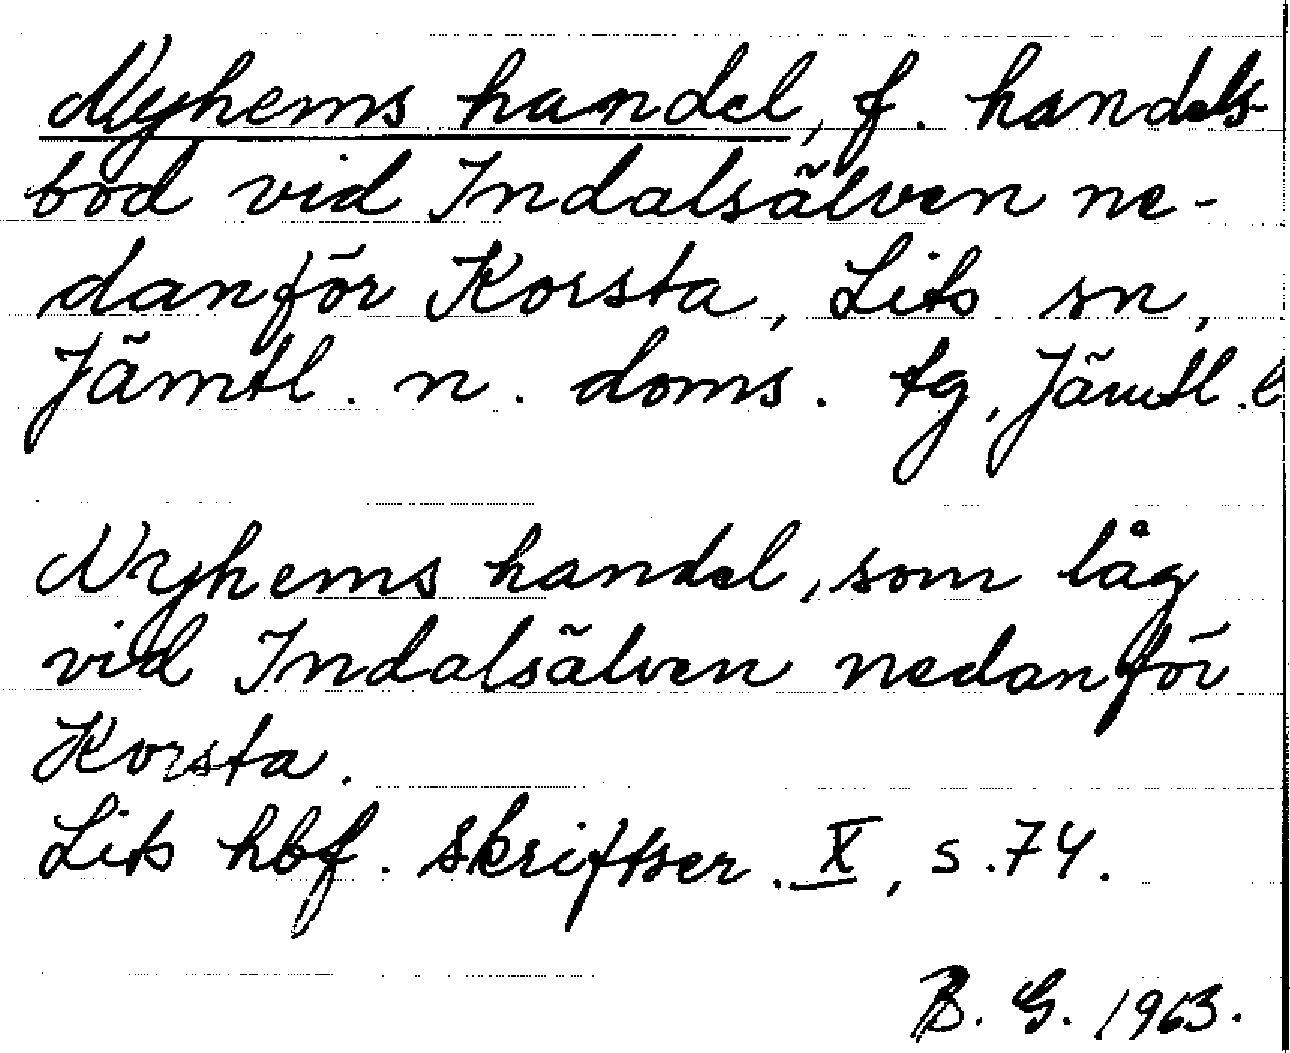 Nyhems handel, f. handels-
bod vid Indalsälven ne-
danför Korsta, Lits sn,
Jämtl. n. doms. tg, Jämtl. l
Nyhems handel, som låg
vid Indalsälven nedanför
Korsta.
Lits hbf. skriftser. X, s. 74.
B. G. 1963.